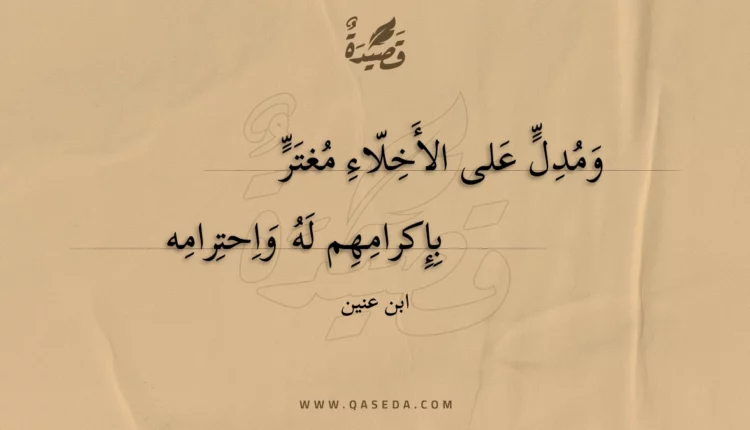 قَصِيدَةٌ
وَمُدِلٍّ عَلى الأَخِلّاءِ مُغتَرٍّ
بِإِكرامِهِم لَهُ وَاِحتِرامِه
ابن عنين
WWW.QASEDA.COM